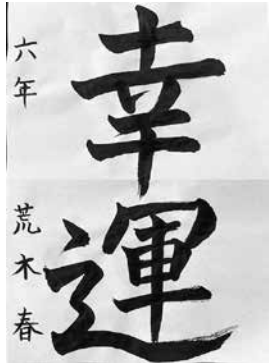 幸運
六年 荒木春